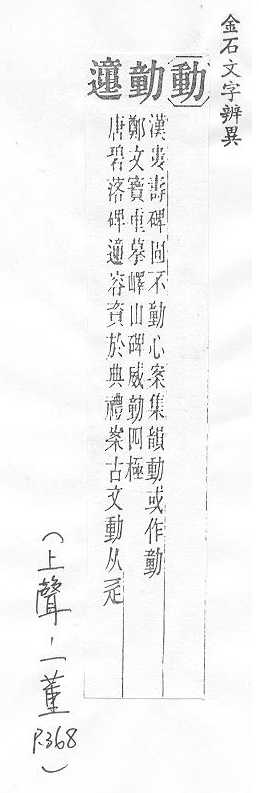 金石文字辨異
動 勭 𨔝
漢夏壽碑固不動心案集韻動或作勭
鄭文寶重摹嶧山碑威勭四極
唐碧落碑𨔝容資於典禮案古文動从辵
(上聲·一董
P.368)